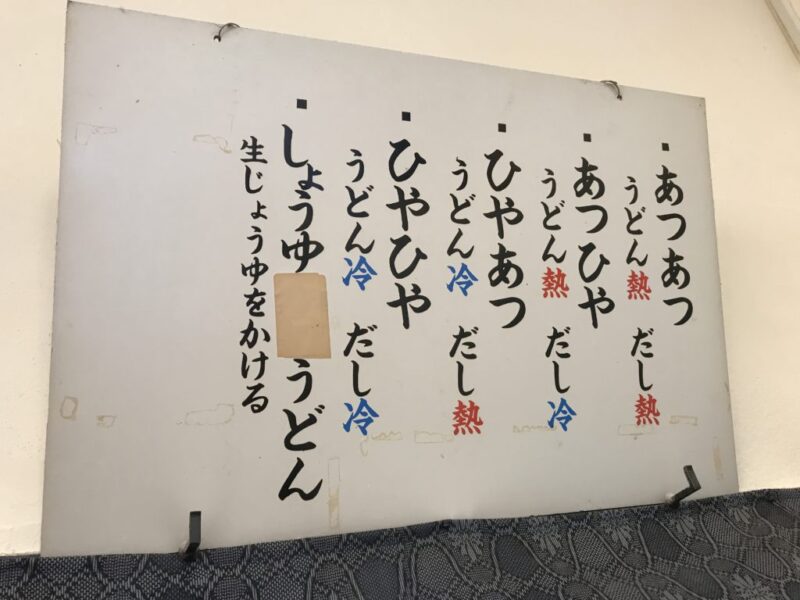 ■あつあつ
うどん熱 だし熱
■あつひや
うどん熱 だし冷
■ひやあつ
うどん冷 だし熱
■ひやひや
うどん冷 だし冷
■しょうゆ うどん
生じょうゆをかける